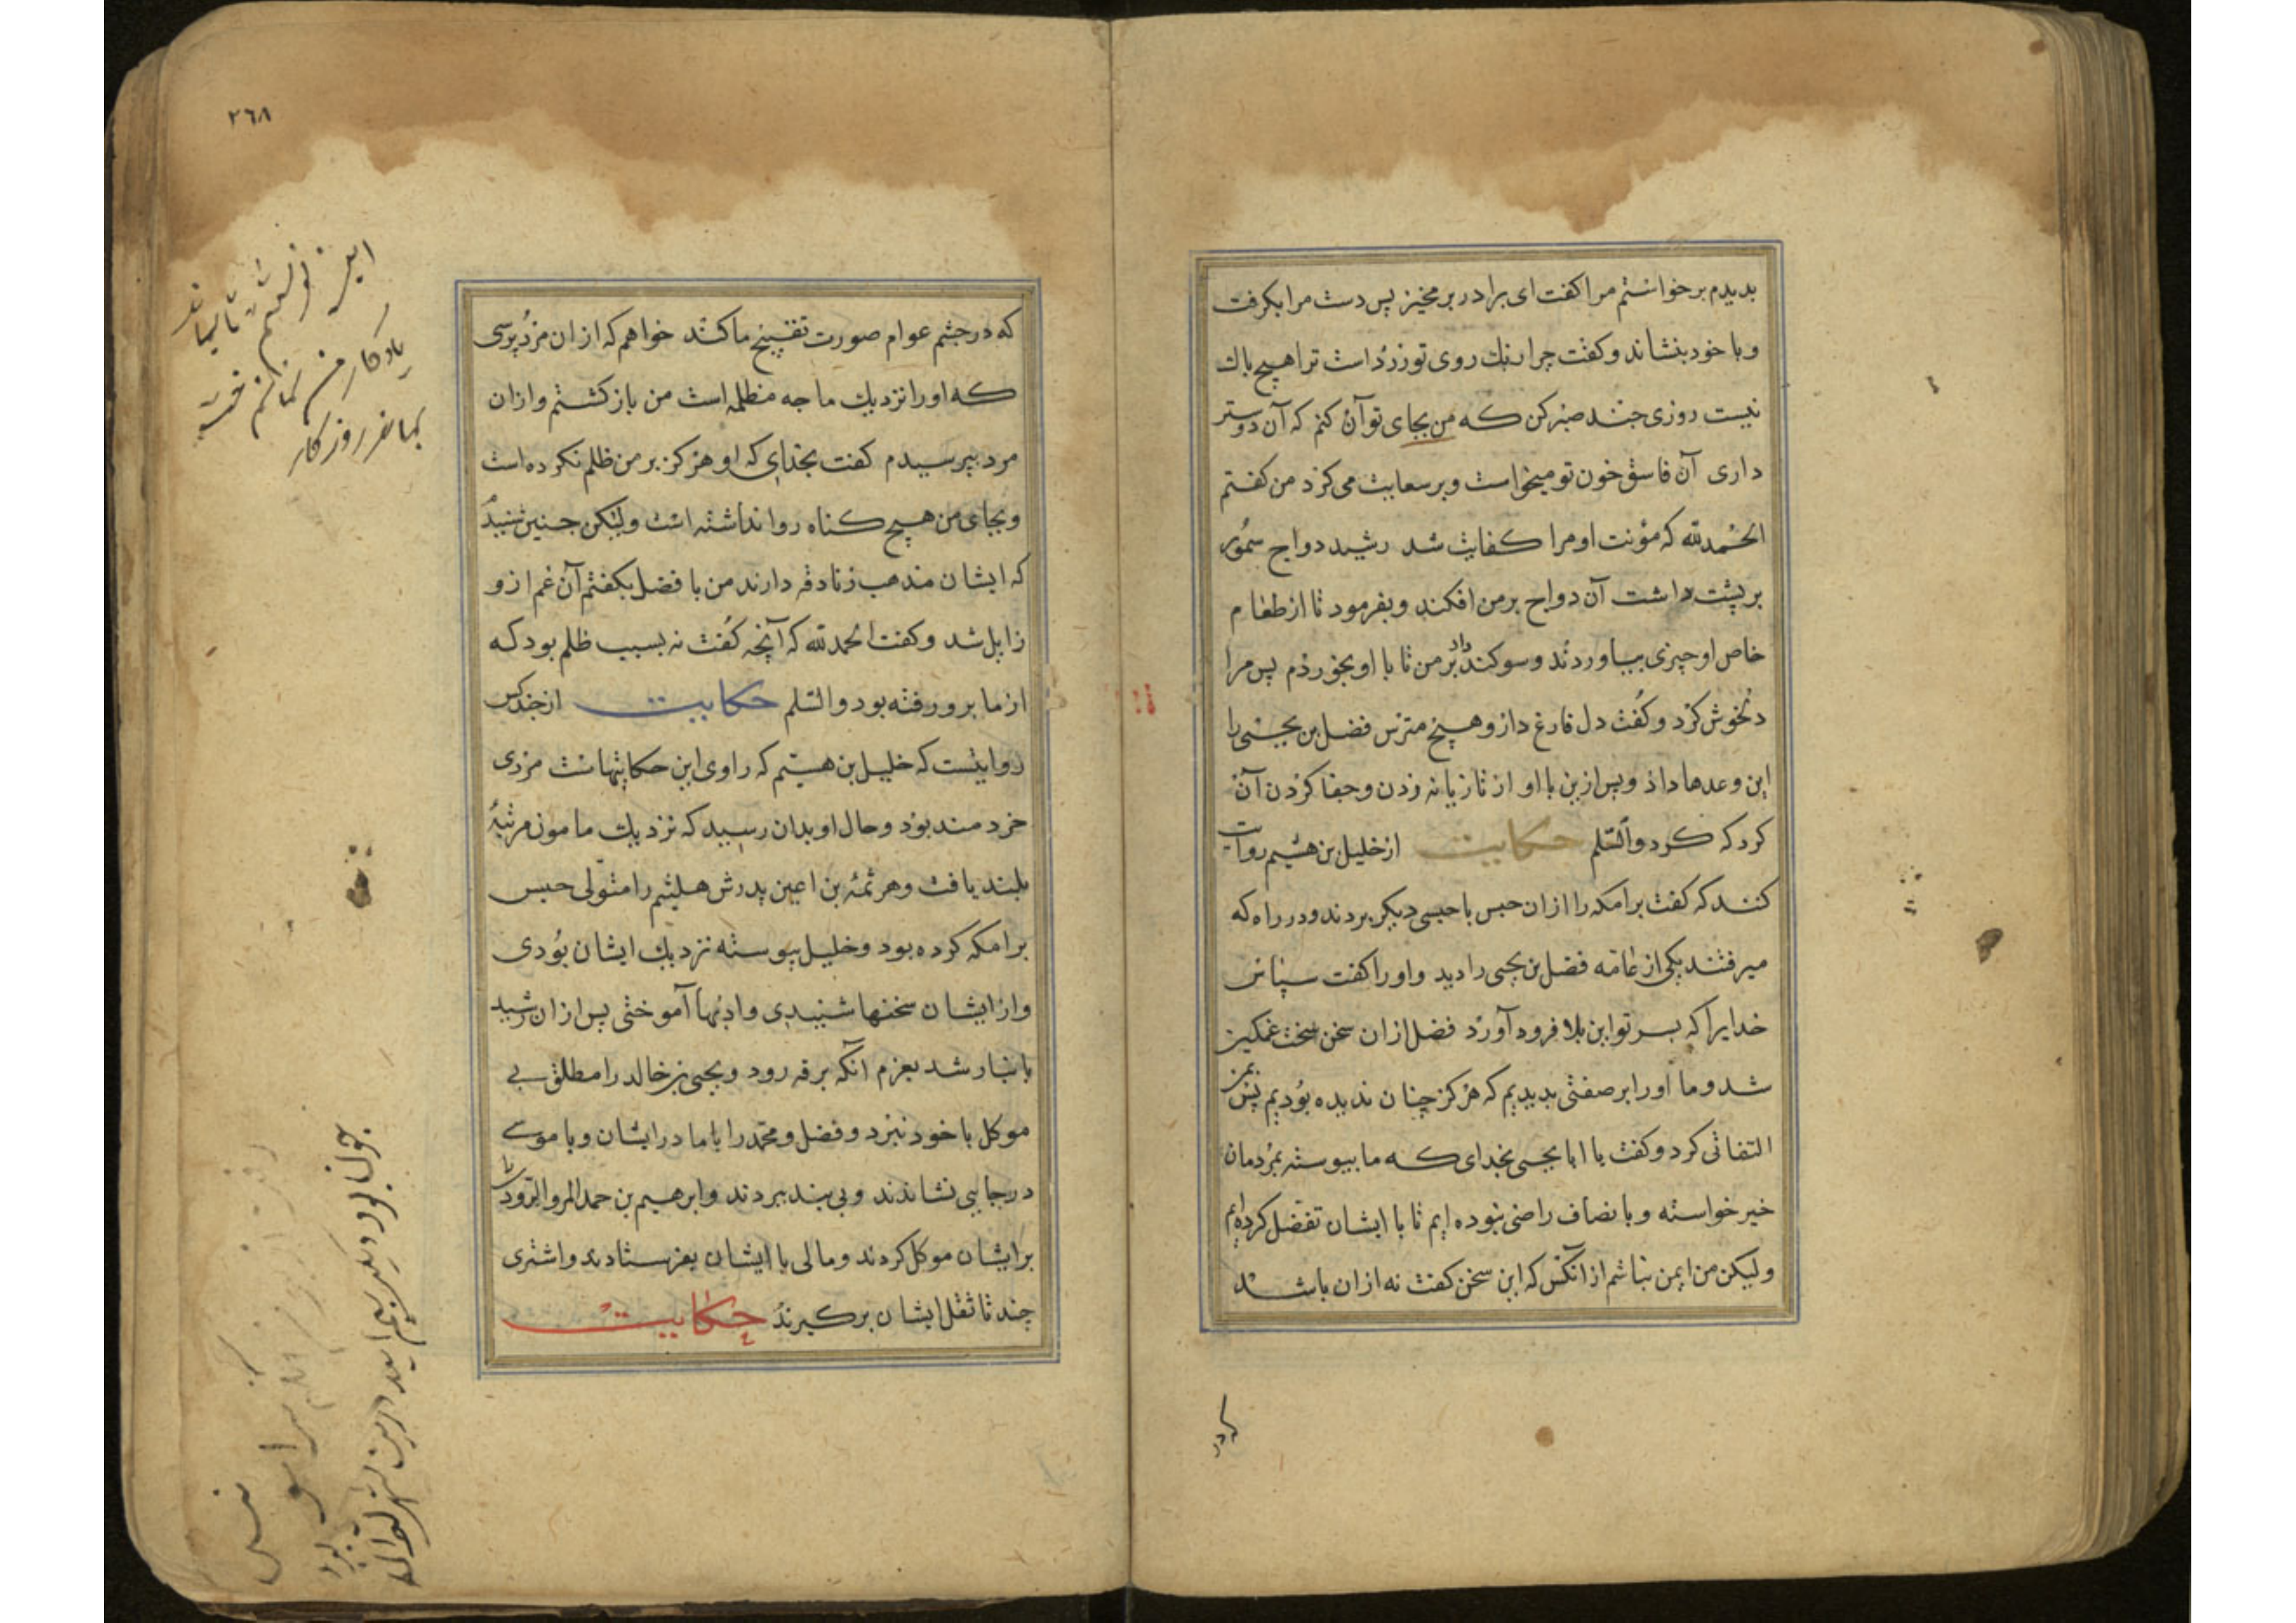 بدیدم برخواستم مرا کفت ای برادر بر مخیز پس دست مرا بکرفت
و با خود بنشاند و کفت چرا رنك روی تو زرد است ترا هیچ باك
نیست روزی چند صبر کن که من بجای تو آن کنم که آن دوستر
داری آن فاسق خون تو میخواست و بر سعایت می کرد من کفتم
الحمد لله که مؤنت او مرا کفایت شد رشید دواج سمور
بر پشت داشت آن دواج بر من افکند و بفرمود تا از طعام
خاص او چیزی بیاوردند و سوکند داد بر من تا با او بخوردم پس مرا
دلخوش کرد و کفت دل فارغ دار و هیچ مترس فضل بن یحیی را
این وعدها داد و پس ازین با او از تازیانه زدن و جفا کردن آن
کرد که کرد والسلم حکایت از خلیل بن هیثم روایت
کنند که کفت برامکه را از ان حبس با حبسی دیکر بردند و در راه که
میرفتند یکی از عامه فضل بن یحیی را دید و او را کفت سپاس
خدایرا که بسر تو این بلا فرود آورد فضل ازان سخن سخت غمکین
شد و ما او را بر صفتی بدیدیم که هرکز چنان ندیده بودیم پس بمن
التفاتی کرد و کفت یا ابا یحیی بخدای که ما پیوسته بمردمان
خیر خواسته و بانصاف راضی نبوده ایم تا با ایشان تفضل کرده ایم
ولیکن من ایمن نباشم از آنکس که این سخن کفت نه ازان باشد
که در
٢٦٨
که در چشم عوام صورت تقبیح ما کنند خواهم که از ان مرد پرسی
که او را نزدیك ما چه مظلمه است من باز کشتم و ازان
مرد بپرسیدم کفت بخدای که او هرکز بر من ظلم نکرده است
و بجای من هیچ کناه روا نداشته است ولیکن چنین شنیدم
که ایشان مذهب زنادقه دارند من با فضل بکفتم آن غم ازو
زایل شد و کفت الحمد لله که آنچه کفت نه بسبب ظلم بود که
از ما برو رفته بود والسلم حکایت از چند کس
روایتست که خلیل بن هیثم که راوی این حکایتهاست مردی
خردمند بود و حال او بدان رسید که نزدیك مامون مرتبهٔ
بلند یافت و هرثمه بن اعین پدرش هیثم را متولی حبس
برامکه کرده بود و خلیل پیوسته نزدیك ایشان بودی
و از ایشان سخنها شنیدی و ادبها آموختی پس از ان رشید
بانبار شد بعزم آنکه برقه رود و یحیی بن خالد را مطلق بی
موکل با خود ببرد و فضل و محمد را با مادر ایشان و با موسی
در جایی نشاندند و بی بند ببردند و ابرهیم بن حمد المروالرودی را
بر ایشان موکل کردند و مالی با ایشان بفرستادند و اشتری
چند تا ثقل ایشان برکیرند حکایت
این نوشتم تا بماند
یادکار من نمانم خط
بماند روزکار